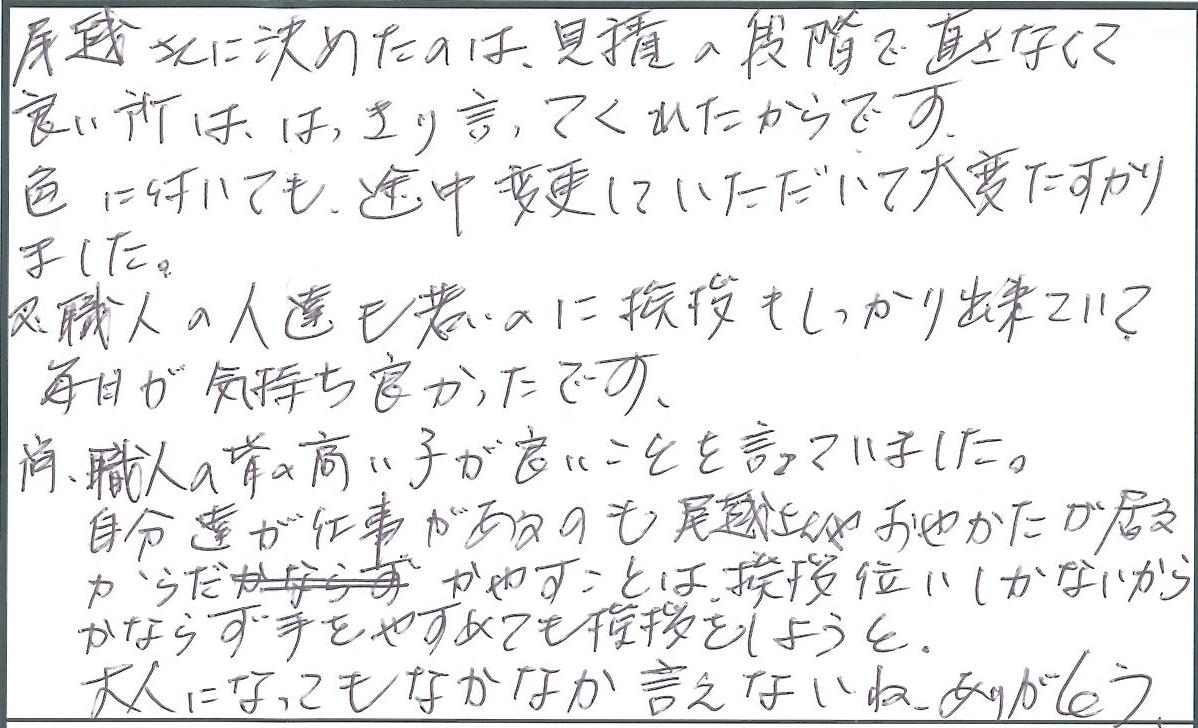 尾越さんに決めたのは、見積の段階で直さなくて
良い所は、はっきり言ってくれたからです。
色に付いても、途中変更していただいて大変たすかり
ました。
又、職人の人達も若いのに挨拶もしっかり出来ていて
毎日が気持ち良かったです、
尚、職人の背の高い子が良いことを言っていました。
自分達が仕事があるのも尾越さんやおやかたが居る
からだかならず かやすことは、挨拶位いしかないから
かならず手をやすめても挨拶をしようと、
大人になってもなかなか言えないね、ありがとう